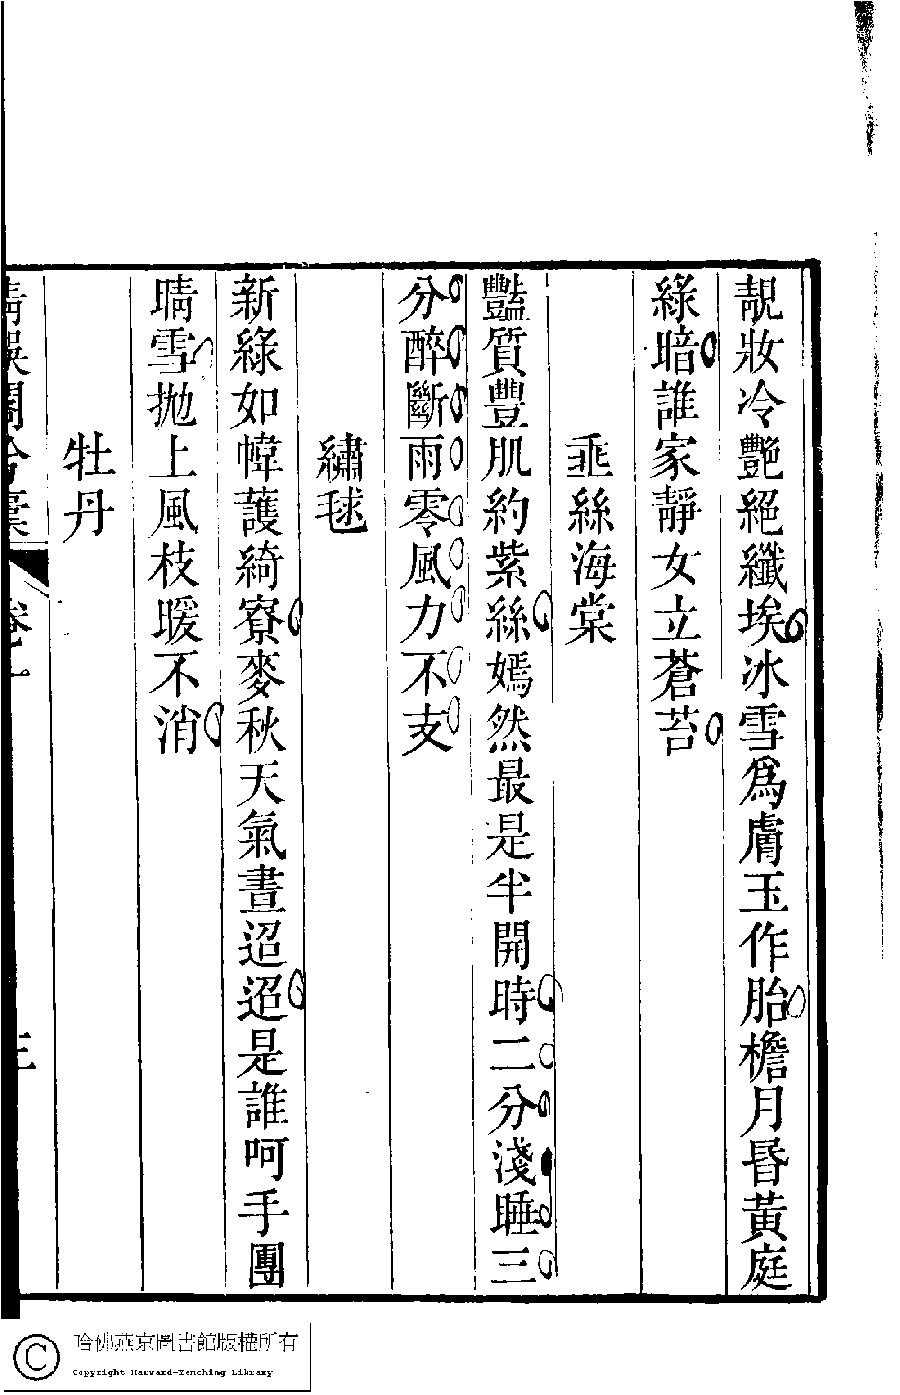 靚妝冷艷絕纖埃冰雪爲膚玉作胎檐月昏黃庭
綠暗誰家靜女立蒼苔
垂絲海棠
豔質豐肌約紫絲嫣然最是半開時二分淺睡三
分醉斷雨零風力不支
繡毬
新綠如幃護綺寮麥秋天氣晝迢迢是誰呵手團
晴雪拋上風枝暖不消
牡丹
三
哈佛燕京圖書館版權所有
Copyright Harvard-Yenching Library